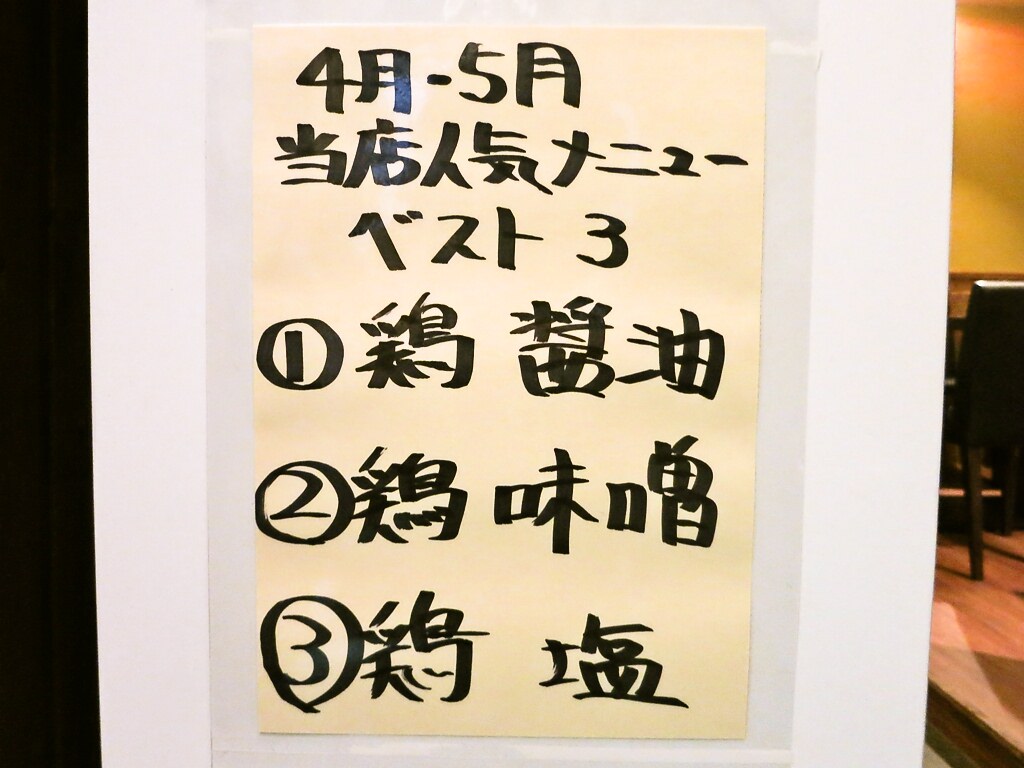 4月-5月
当店人気メニュー
ベスト 3
①鶏 醤油
②鶏 味噌
③鶏 塩